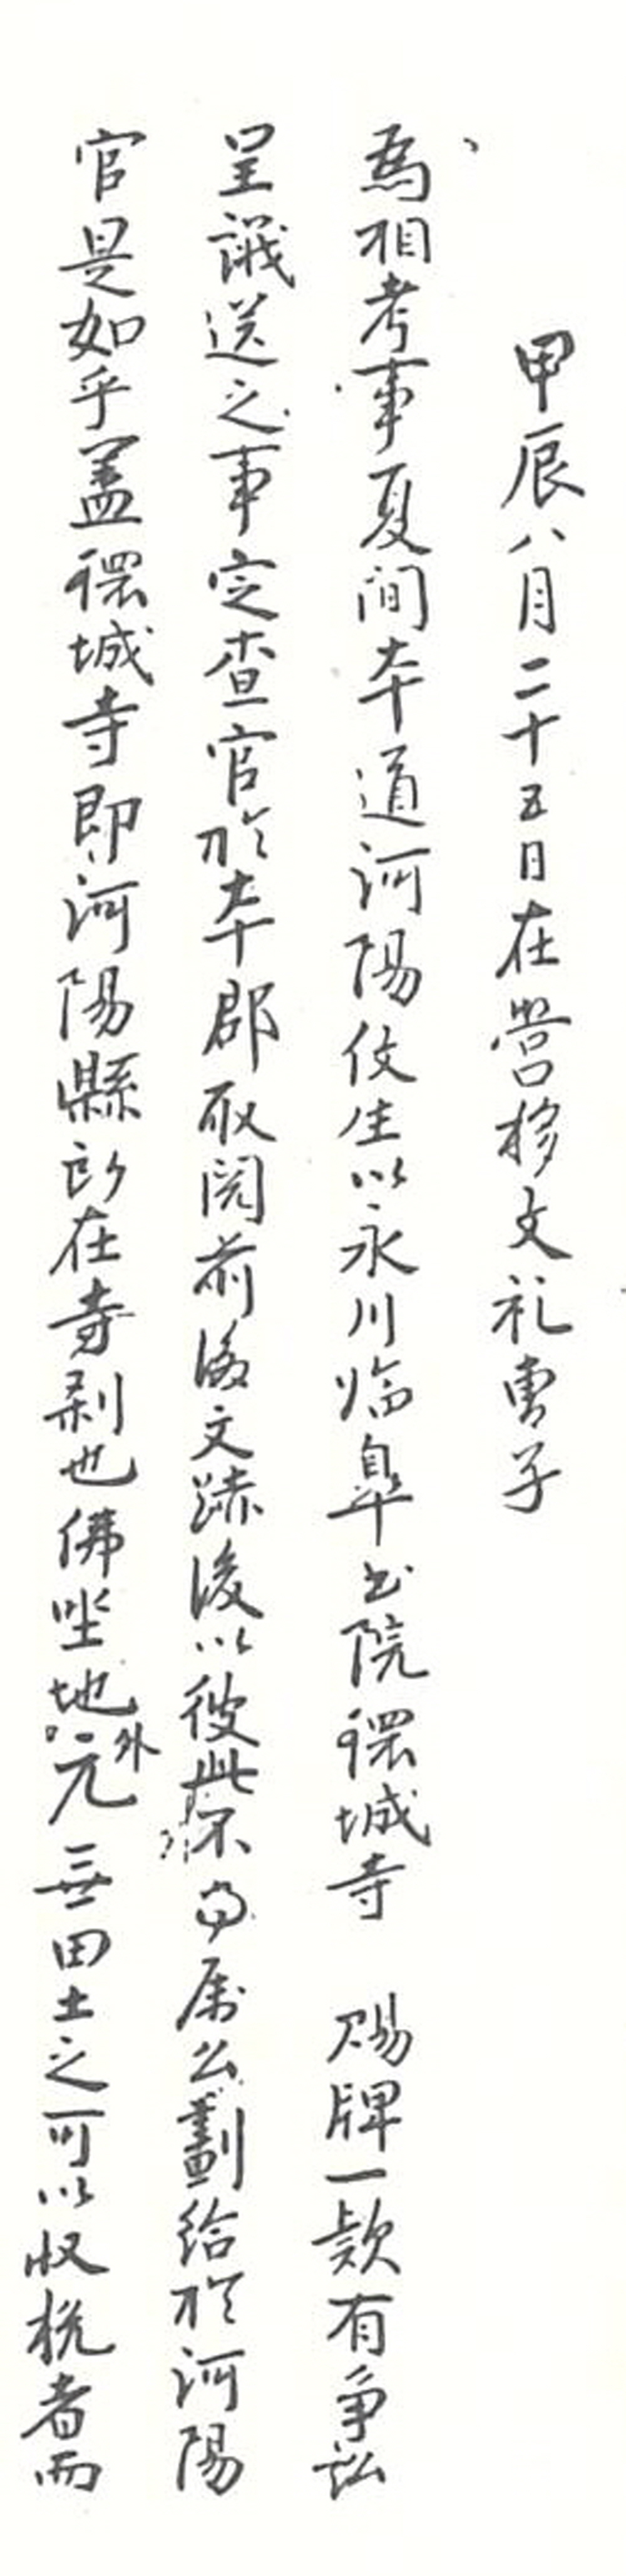 甲辰八月二十五日在營移文礼曹子
爲相考事夏间本道河陽仗生以永川临皐书院環城寺 賜牌一款有爭訟
呈議送之事定查官於本郡取閱前後文蹟後以彼此不當属公劃給於河陽
官是如乎盖環城寺即河陽縣所在寺刹也佛坐地外元無田土之可以收稅者而